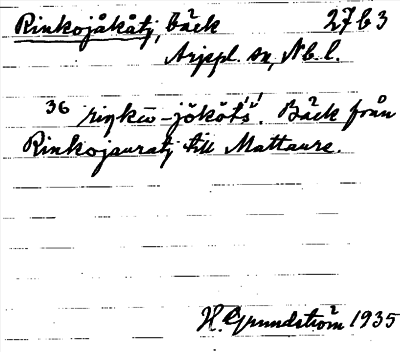 Rinkojåkåtj, bäck 27 b 3
Arjepl. sn, Nb. l.
36 riŋkω̄-jǒkǒt́ś. Bäck från
Rinkojauratj till Mattaure.
H. Grundström 1935